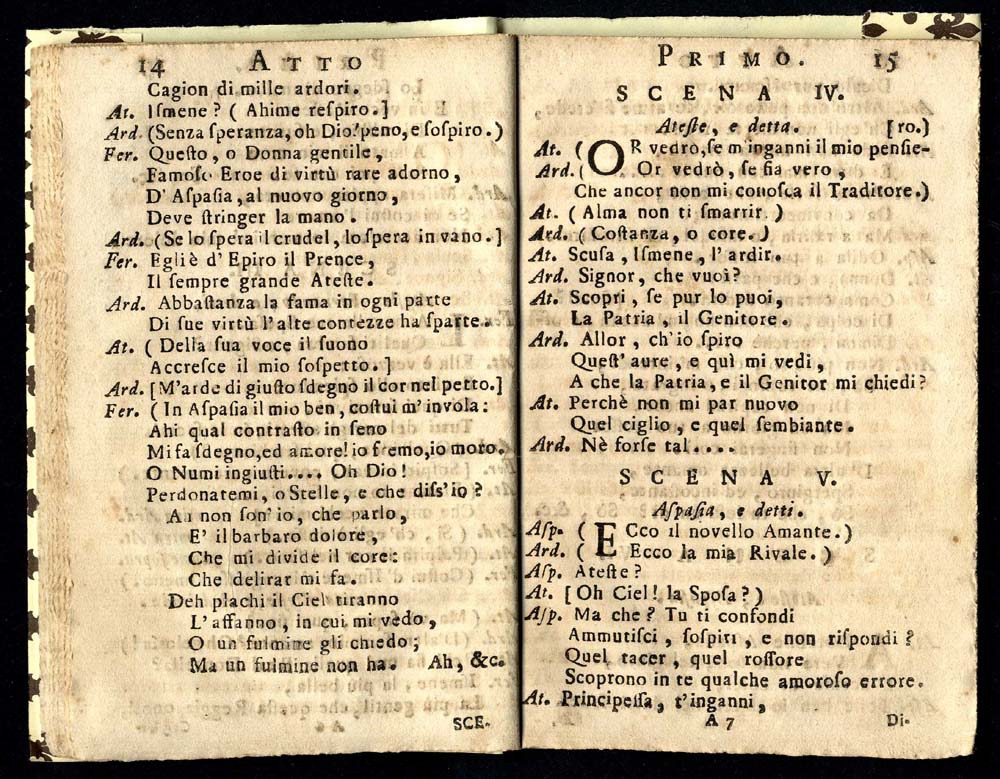 14 ATTO
Cagion di mille ardori.
At. Iſmene? ( Ahime reſpiro.]
Ard. (Senza ſperanza, oh Dio! peno, e ſoſpiro.)
Fer. Queſto, o Donna gentile,
Famoſo Eroe di virtù rare adorno,
D' Aſpaſia, al nuovo giorno,
Deve ſtringer la mano.
Ard. (Se lo ſpera il crudel, lo ſpera in vano.]
Fer. Egli è d' Epiro il Prence,
Il ſempre grande Ateſte.
Ard. Abbaſtanza la fama in ogni parte
Di ſue virtù l'alte contezze ha ſparte.
At. ( Della ſua voce il ſuono
Accreſce il mio ſoſpetto.]
Ard. [M'arde di giuſto ſdegno il cor nel petto.]
Fer. ( In Aſpaſia il mio ben, coſtui m'invola:
Ahi qual contraſto in ſeno
Mi fa ſdegno, ed amore! io fremo, io moro.
O Numi ingiuſti.... Oh Dio!
Perdonatemi, o Stelle, e che diſs'io?
Ah non ſon' io, che parlo,
E' il barbaro dolore,
Che mi divide il core:
Che delirar mi fa.
Deh plachi il Ciel tiranno
L'affanno, in cui mi vedo,
O un fulmine gli chiedo;
Ma un fulmine non ha. Ah, &c.
SCE-
PRIMO. 15
SCENA IV.
Ateſte, e detta. [ro.)
At. ( OR vedrò, ſe m'inganni il mio penſie-
Ard. ( Or vedrò, ſe ſia vero,
Che ancor non mi conoſca il Traditore.)
At. ( Alma non ti ſmarrir.)
Ard. ( Coſtanza, o core.)
At. Scuſa, Iſmene, l'ardir.
Ard. Signor, che vuoi?
At. Scopri, ſe pur lo puoi,
La Patria, il Genitore.
Ard. Allor, ch'io ſpiro
Queſt' aure, e quì mi vedi,
A che la Patria, e il Genitor mi chiedi?
At. Perchè non mi par nuovo
Quel ciglio, e quel ſembiante.
Ard. Nè forſe tal....
SCENA V.
Aſpaſia, e detti.
Aſp. ( ECco il novello Amante.)
Ard. ( Ecco la mia Rivale.)
Aſp. Ateſte?
At. [Oh Ciel! la Spoſa?)
Aſp. Ma che? Tu ti confondi
Ammutiſci, ſoſpiri, e non riſpondi?
Quel tacer, quel roſſore
Scoprono in te qualche amoroſo errore.
At. Principeſſa, t'inganni,
A 7 Di-